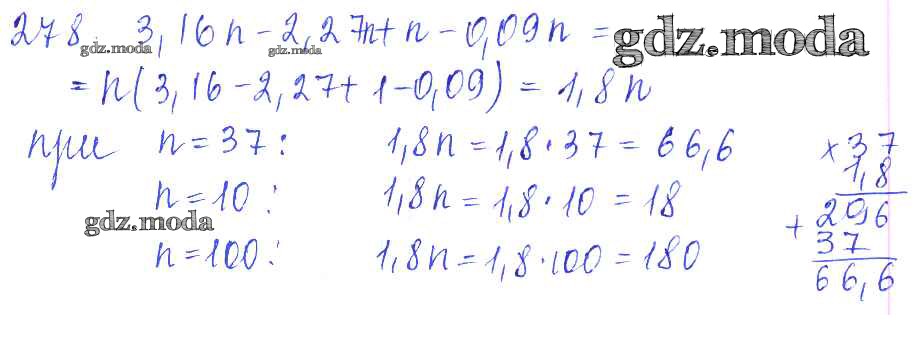 278. 3,16n - 2,27n + n - 0,09n =
gdz.moda
gdz.moda
gdz.moda
= n(3,16 - 2,27 + 1 - 0,09) = 1,8n
при n = 37: 1,8n = 1,8 · 37 = 66,6
n = 10: 1,8n = 1,8 · 10 = 18
gdz.moda
n = 100: 1,8n = 1,8 · 100 = 180
× 37
1,8
+ 29,6
37
66,6